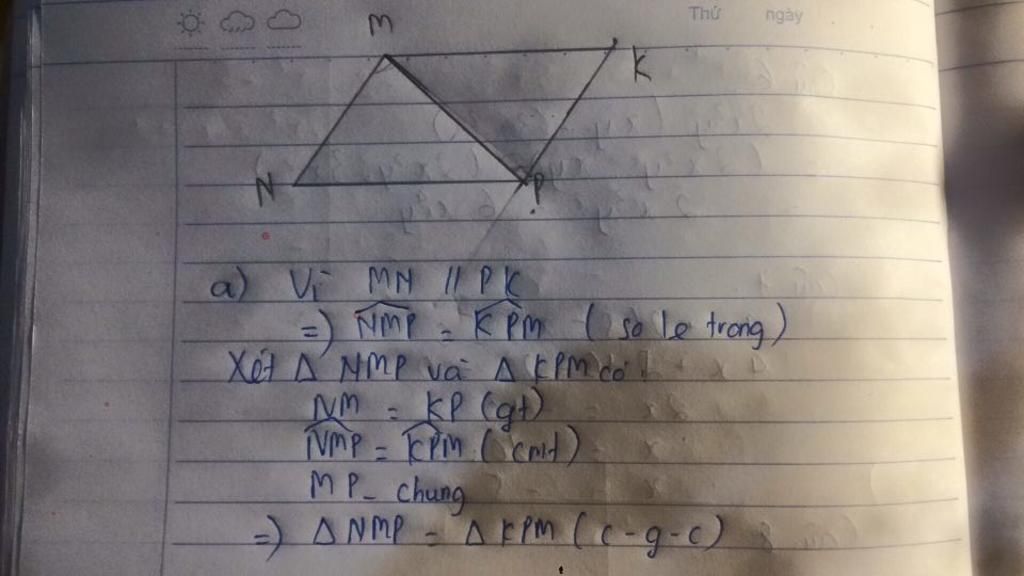 Thứ ngày
M
K
N
P
a) Vì MN // PK
=) NMP = KPM ( so le trong )
Xét Δ NMP và Δ KPM có :
NM = KP (gt)
NMP = KPM ( cmt )
MP - chung
=) Δ NMP = Δ KPM ( c - g - c )